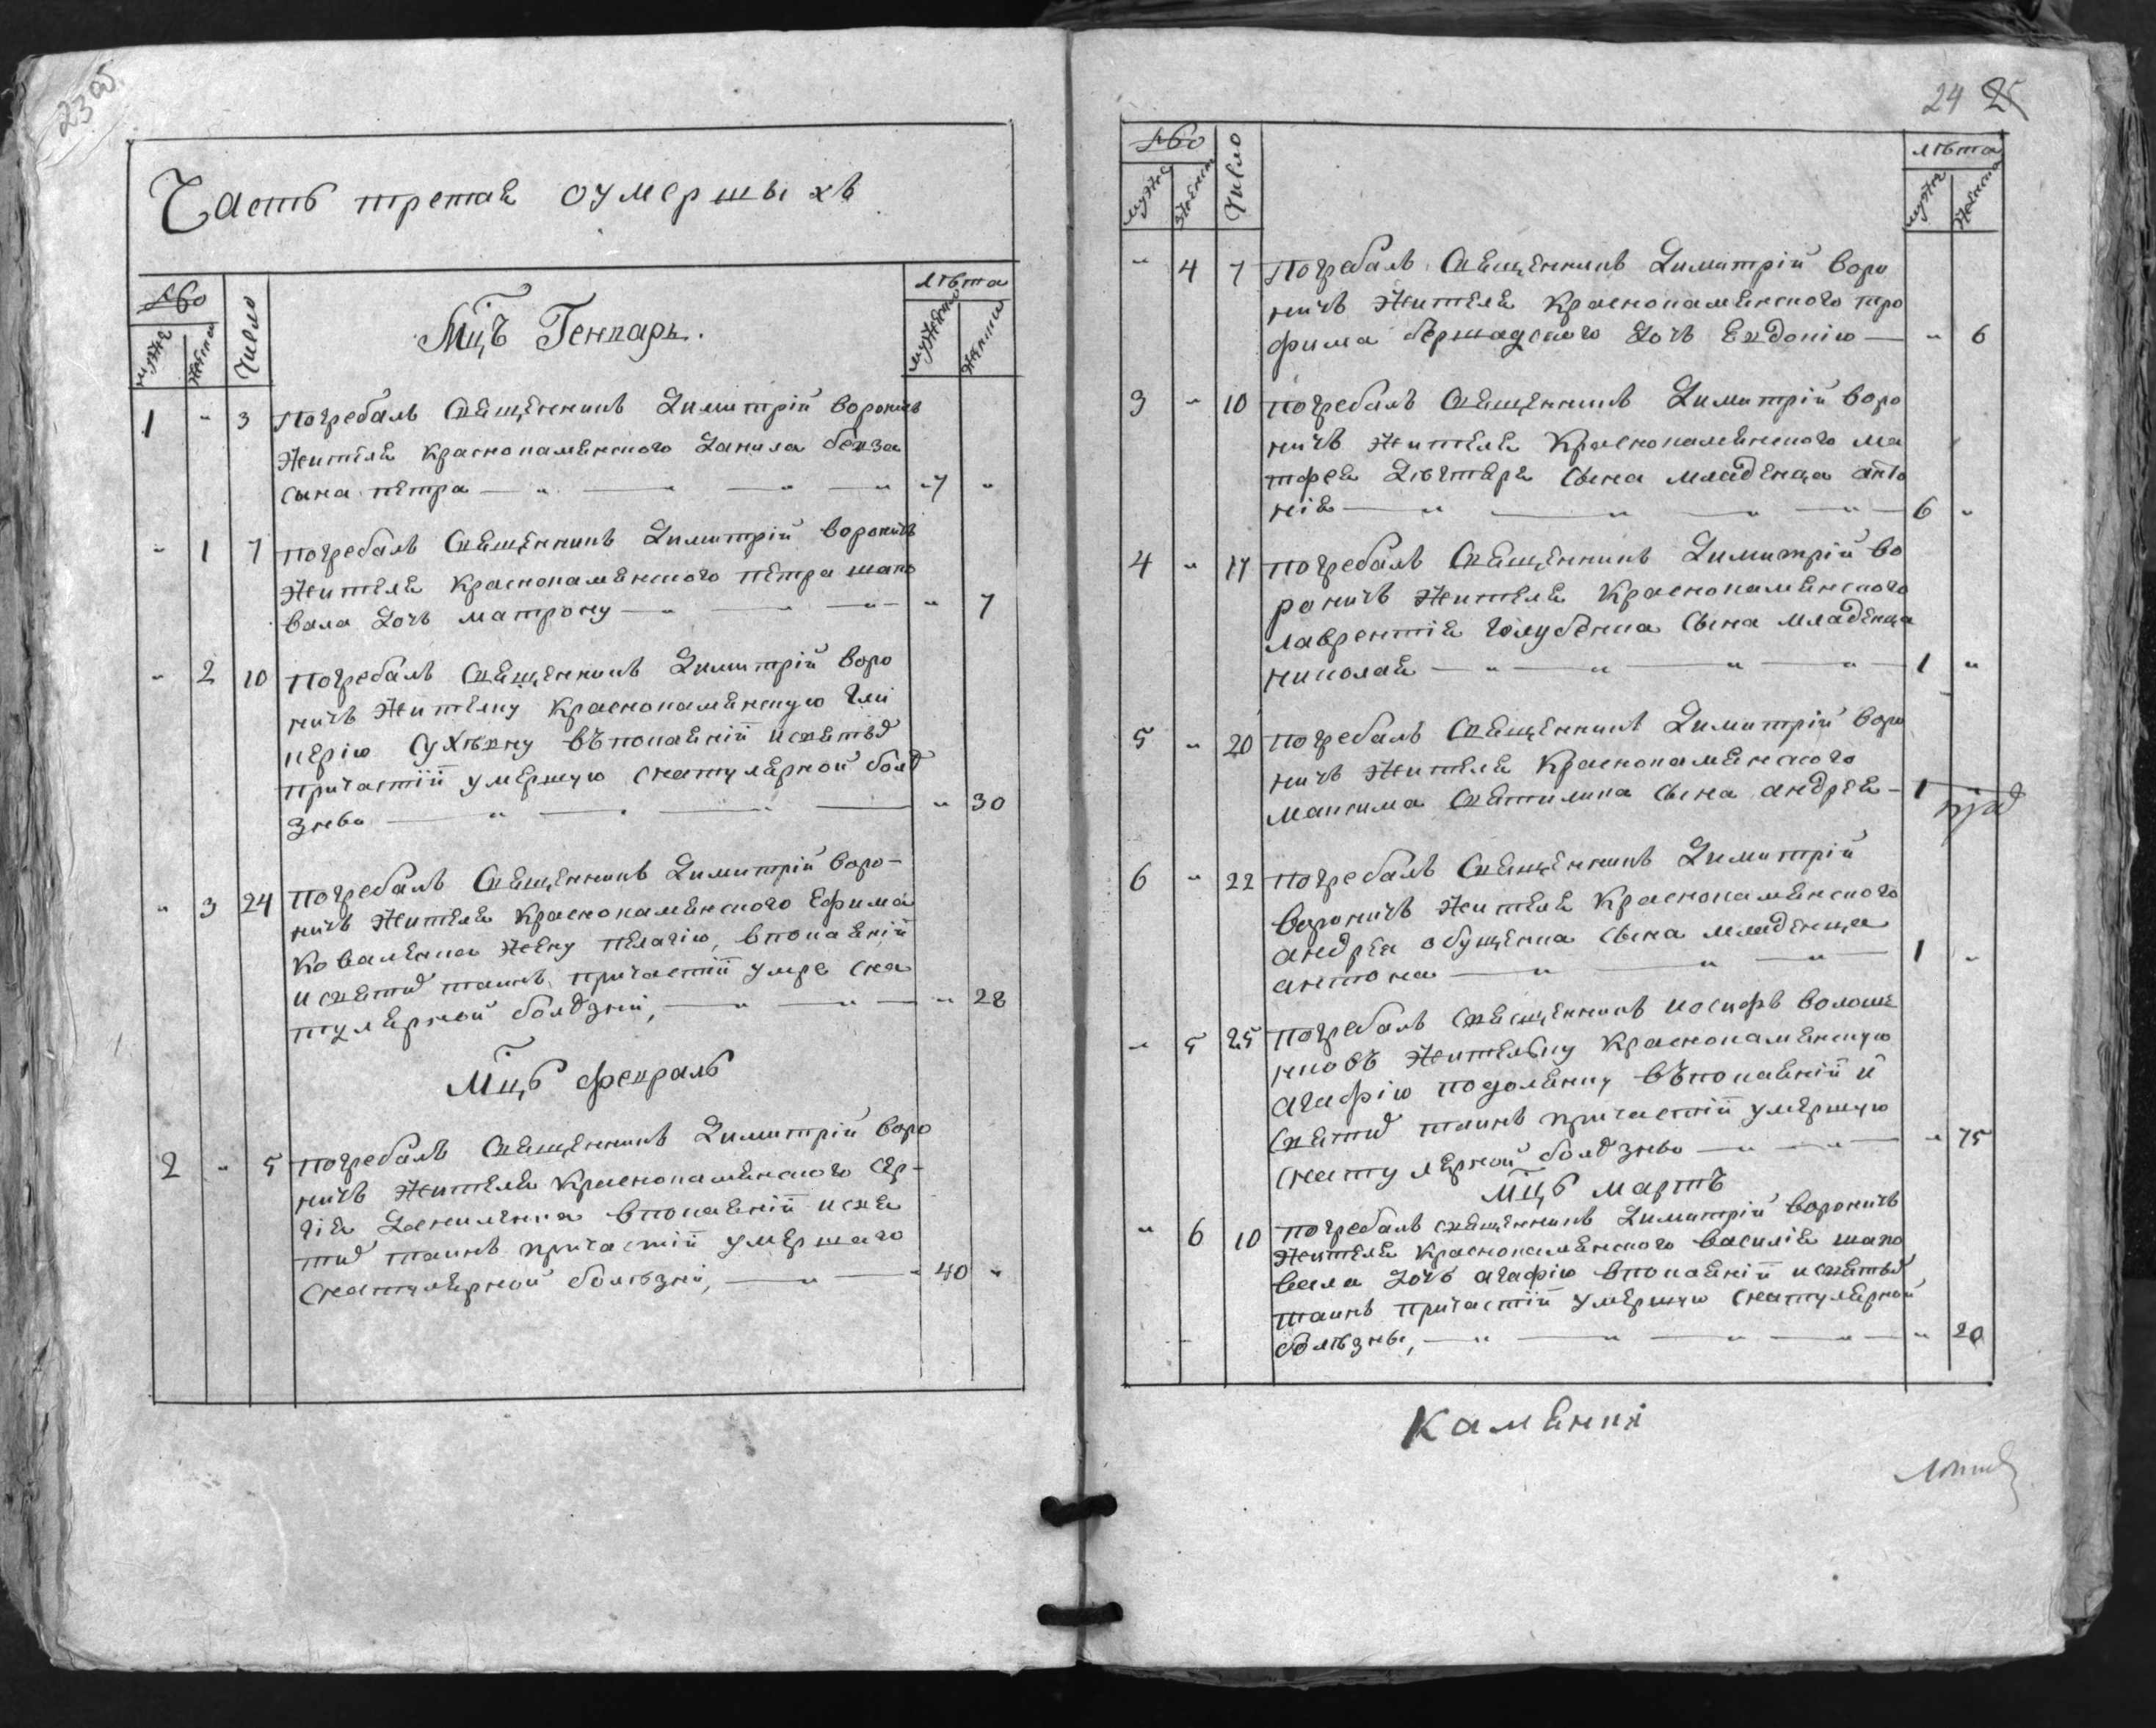 23 об
Часть третая оумершыхъ
№о
Число
Мцъ Генварь.
лѣта
муже
женска
1 " 3 Погребалъ Священникъ Димитрій вороничъ
жителя краснокаменского данила бевза
сына петра — " — " — " — " 7 "
" 1 7 погребалъ Священникъ Димитрій вороничъ
жителя краснокаменского петра шапо
вала дочь матрону — " — " — " 7
" 2 10 погребалъ Священникъ Димитрій воро
ничъ жителку краснокаменскую гли
керію сухъвну въпокаяніи исвятыхъ
причастіи умершую снатуларной болѣ
знѣю — " — " — " 30
" 3 24 погребалъ Священникъ Димитрій воро-
ничъ жителя краснокаменского Ефима
коваленка жену пелагію, впокаяніи
исвятыхъ таинъ причастіи умре сна
туларной болѣзни, — " — " — " 28
Мцъ февраль
2 " 5 погребалъ Священникъ Димитрій воро
ничъ жителя краснокаменского сер-
гія даниленка впокаяніи исвя
тыхъ таинъ причастіи умершаго
снатуларной болѣзни, — " — " 40 "
24
№о
муже
женска
Число
лѣта
муже
женска
" 4 7 Погребалъ Священникъ Димитрій воро
ничъ жителя краснокаменского тро
фима бершадского дочь Евдокію — " 6
3 " 10 погребалъ Священникъ Димитрій воро
ничъ жителя краснокаменского ма
тфея дюгтяря сына младенца анто
нія — " — " — " — " — 6 "
4 " 17 погребалъ Священникъ Димитрій во
роничъ жителя краснокаменского
лаврентія голубенка сына младенца
николая — " — " — " — " — 1 "
5 " 20 погребалъ Священникъ Димитрій воро
ничъ жителя краснокаменского
максима Святилика сына андрея — 1
6 " 22 погребалъ Священникъ Димитрій
вороничъ жителя краснокаменского
андрея обущенка сына младенца
антона — " — " — " — 1 "
" 5 25 погребалъ священникъ иосифъ волоше
нковъ жителку краснокаменскую
агафію подолянку въпокаяніи и
святыхъ таинъ причастіи умершую
снатуларной болѣзнью — " — " — " 75
Мцъ мартъ
" 6 10 погребалъ священникъ Димитрій вороничъ
жителя краснокаменского василія шапо
вала дочь агафію впокаяніи исвятыхъ
таинъ причастіи умершую снатуларной
болѣзны, — " — " — " — " — " 20
Каменки